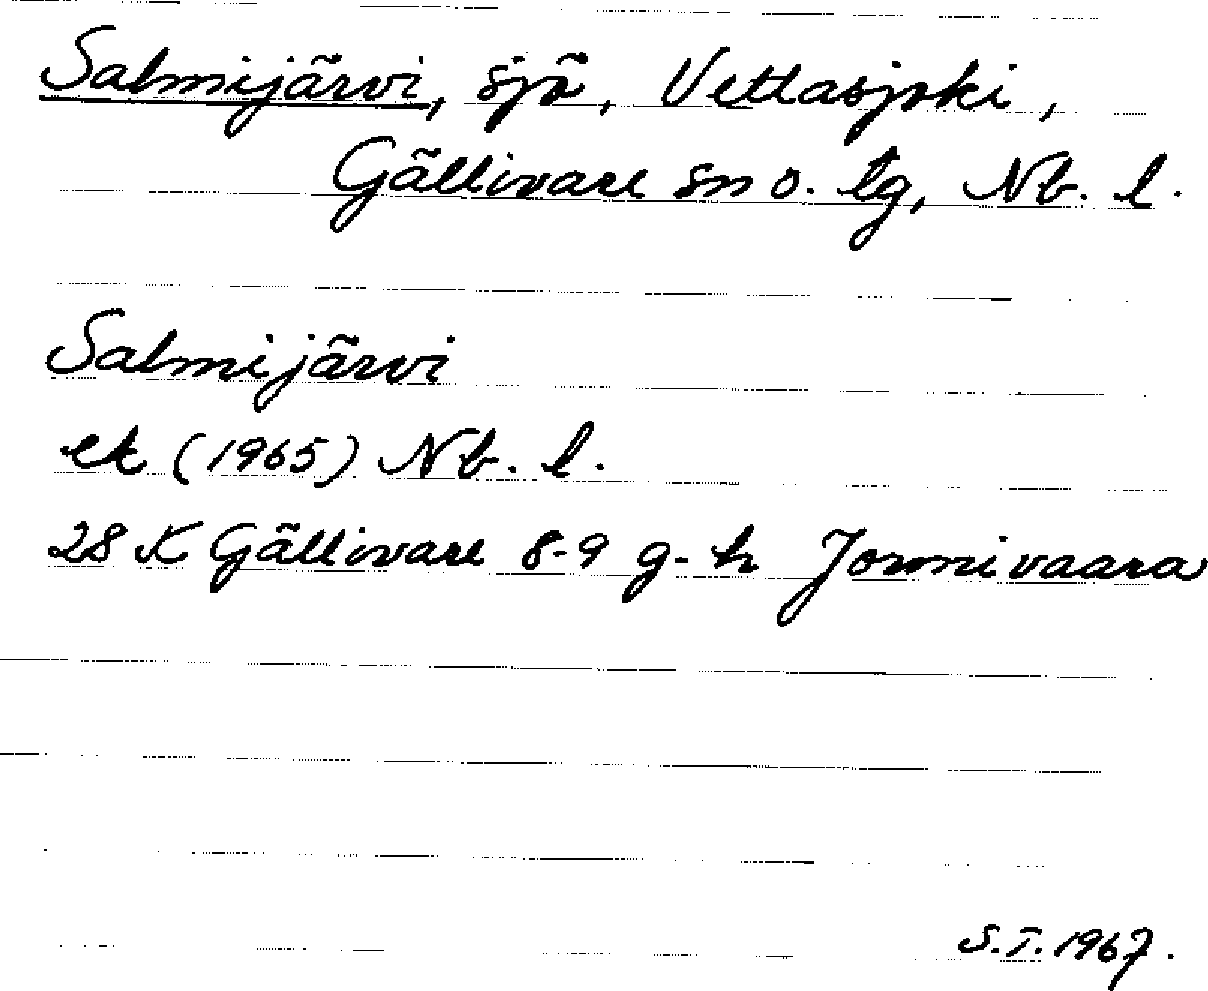 Salmijärvi, sjö, Vettasjoki,
Gällivare sn o. tg, Nb. l.
Salmijärvi
ek (1965) Nb. l.
28 K Gällivare 8-9 g-h Jormivaara
S.T. 1967.